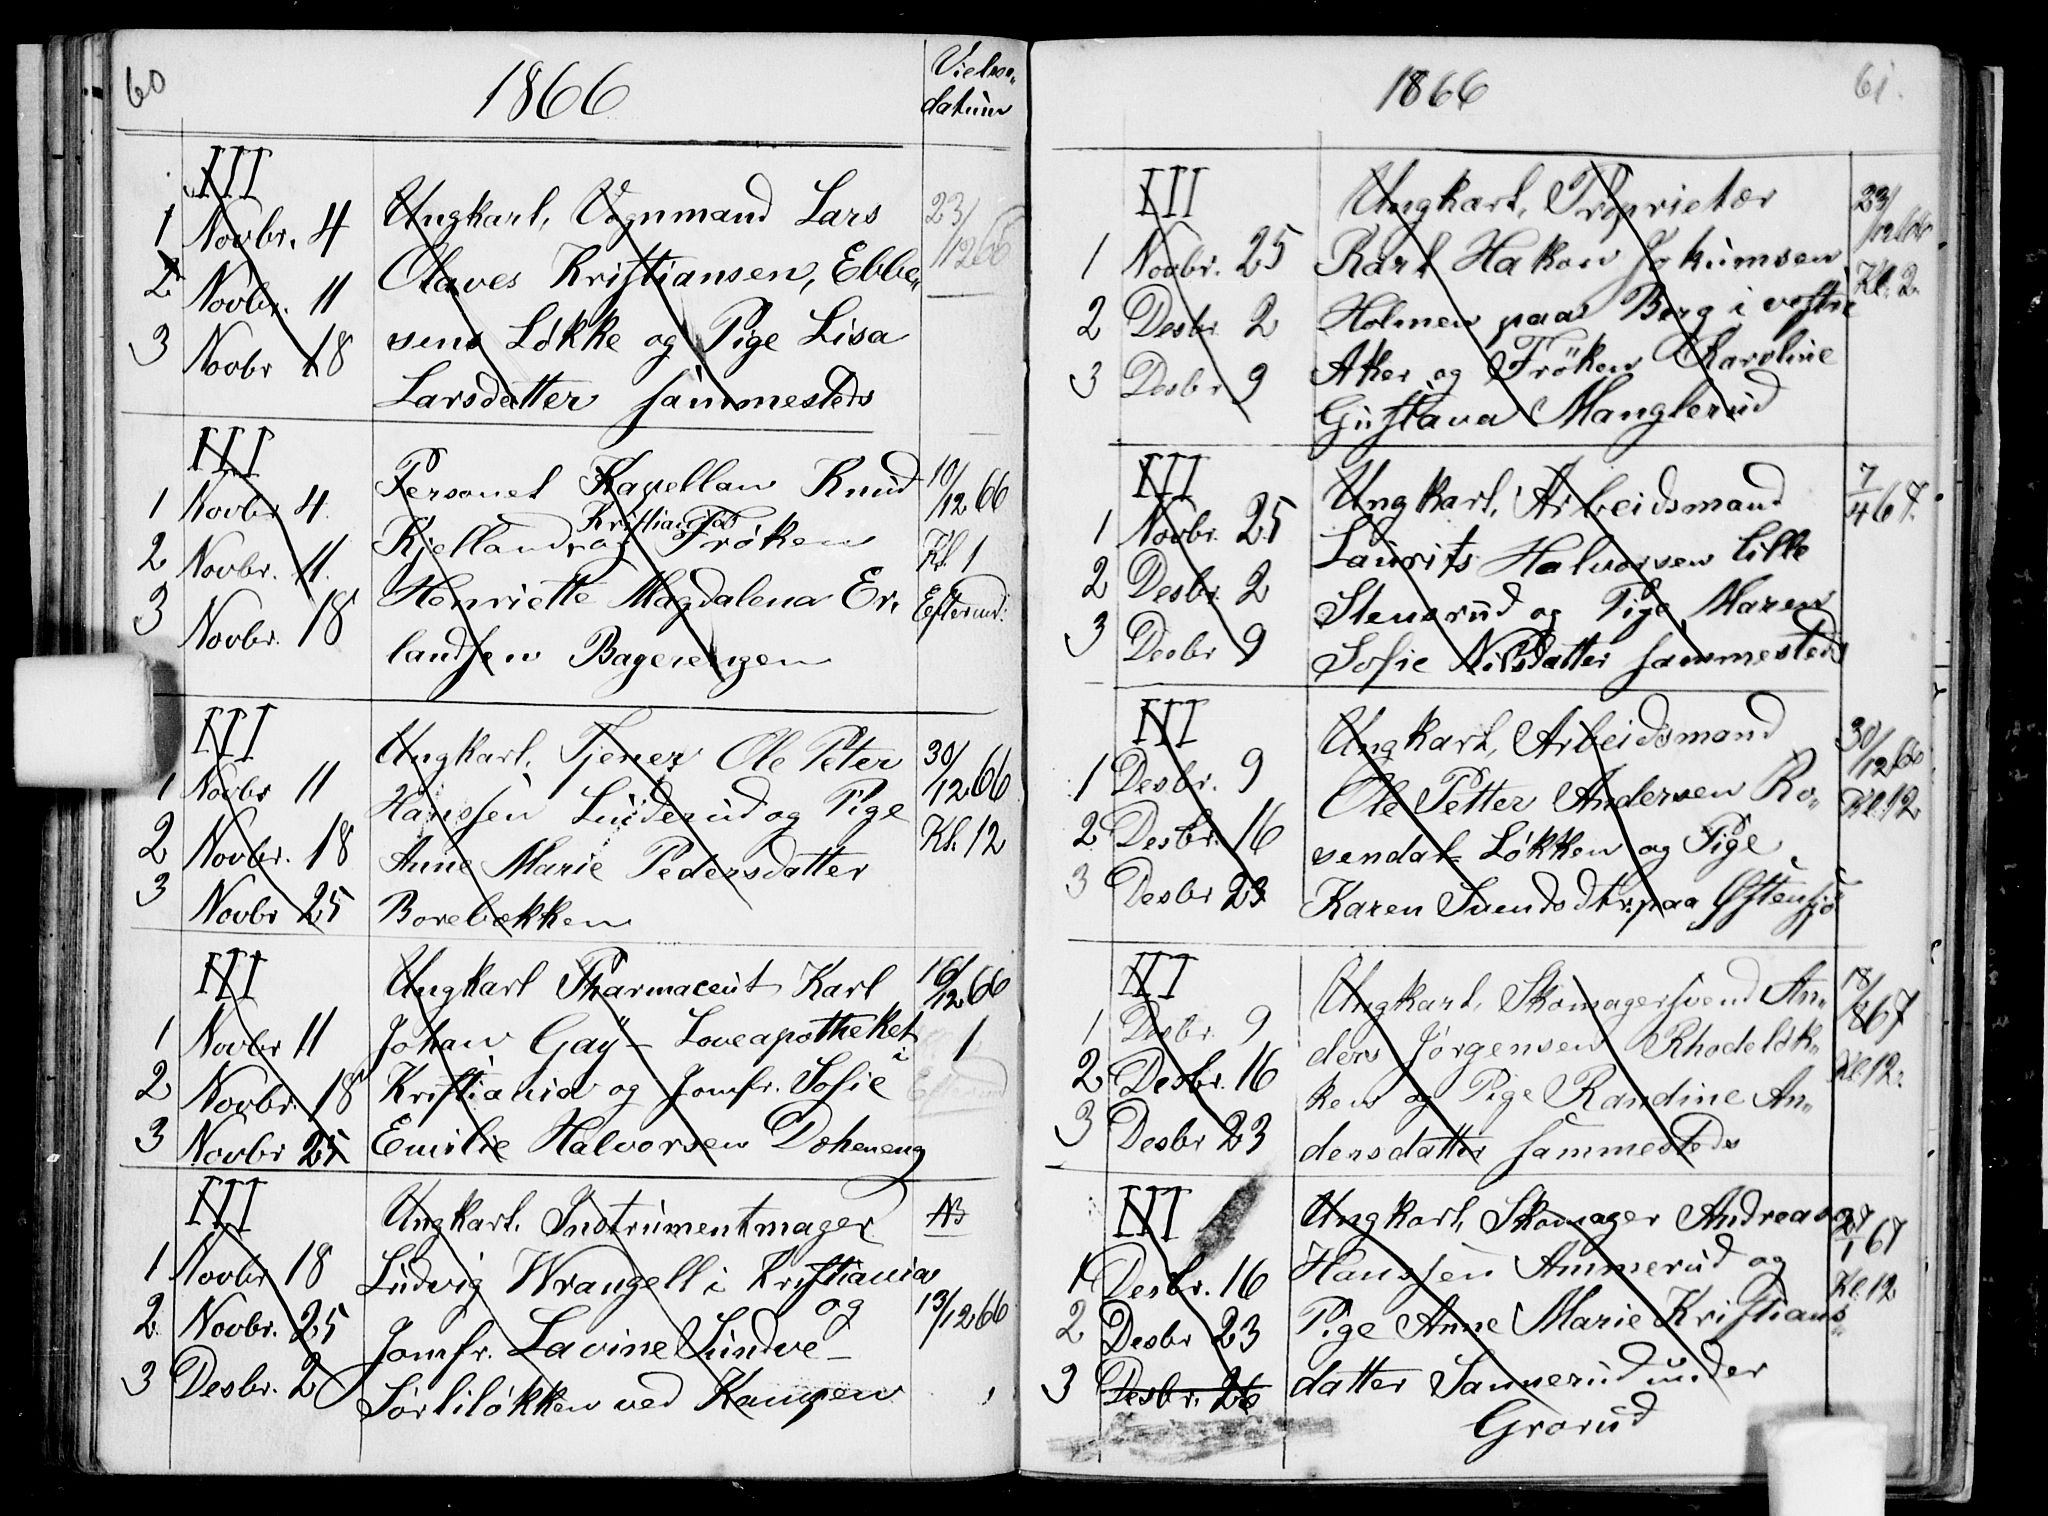 60
1866
Vielse-
datum
III
1 Novbr. 4 Ungkarl, Vognmand Lars 23/12 66
2 Novbr. 11 Olaves Kristiansen, Ebbe-
3 Novbr 18 sens Løkke og Pige Lisa
Larsdatter sammesteds
III
1 Novbr 4. Personel Kapellan Knud 10/12 66
Kristiansand
2 Novbr. 11. Kjelland, og Frøken Kl. 1
3 Novbr. 18 Henriette Magdalena Er- Eftermd:
landsen Bagerengen
III
1 Novbr 11 Ungkarl, Tjener Ole Peter 30/12 66
2 Novbr. 18 Hanssen Linderud og Pige Kl. 12
3 Novbr 25 Anne Marie Pedersdatter
Borebækken
III
1 Novbr 11 Ungkarl Pharmaceut Karl 16/12 66
Johan Gay - Loveapotheket i 1
2 Novbr. 18 Kristiania og Jomfr. Sofie Eftermd
3 Novbr 25 Emilie Halvorsen Døheneng
III
1 Novbr 18 Ungkarl. Instrumentmager NB
2 Novbr. 25 Ludvig Wrangell i Kristiania
og 13/12 66
3 Desbr. 2 Jomfr. Lavine Sundve-
Sørliløkken ved Kampen
1866
61.
III
1 Novbr. 25 Ungkarl, Proprietær 23/12 66
2 Desbr. 2 Karl Hakon Jokumsen Kl. 2
3 Desbr 9 Holmen paa Berg i vestre
Aker og Fröken Karoline
Gustava Manglerud
III
1 Novbr. 25 Ungkarl, Arbeidsmand 7/4 67.
2 Desbr. 2 Laurits Halvorsen lille
3 Desbr 9 Stensrud og Pige Maren
Sofie Nilsdatter sammesteds
III
1 Desbr. 9 Ungkarl, Arbeidsmand 30/12 66
2 Desbr. 16 Ole Petter Andersen Ro- Kl. 12
3 Desbr 23 sendal- Løkken og Pige
Karen Svendsdtr. paa Østensjø
III
1 Desbr. 9 Ungkarl, Skomagersvend An- 67
2 Desbr. 16 ders Jørgensen Rhodeløk- Kl 12.
3 Desbr 23 ken og Pige Randine An-
dersdatter sammesteds
III
1 Desbr. 16 Ungkarl, Skomager Andreas 67
2 Desbr 23 Hanssen Ammerud og Kl. 12
3 Desbr. 26 Pige Anne Marie Kristians-
datter Sannerud under
Grorud